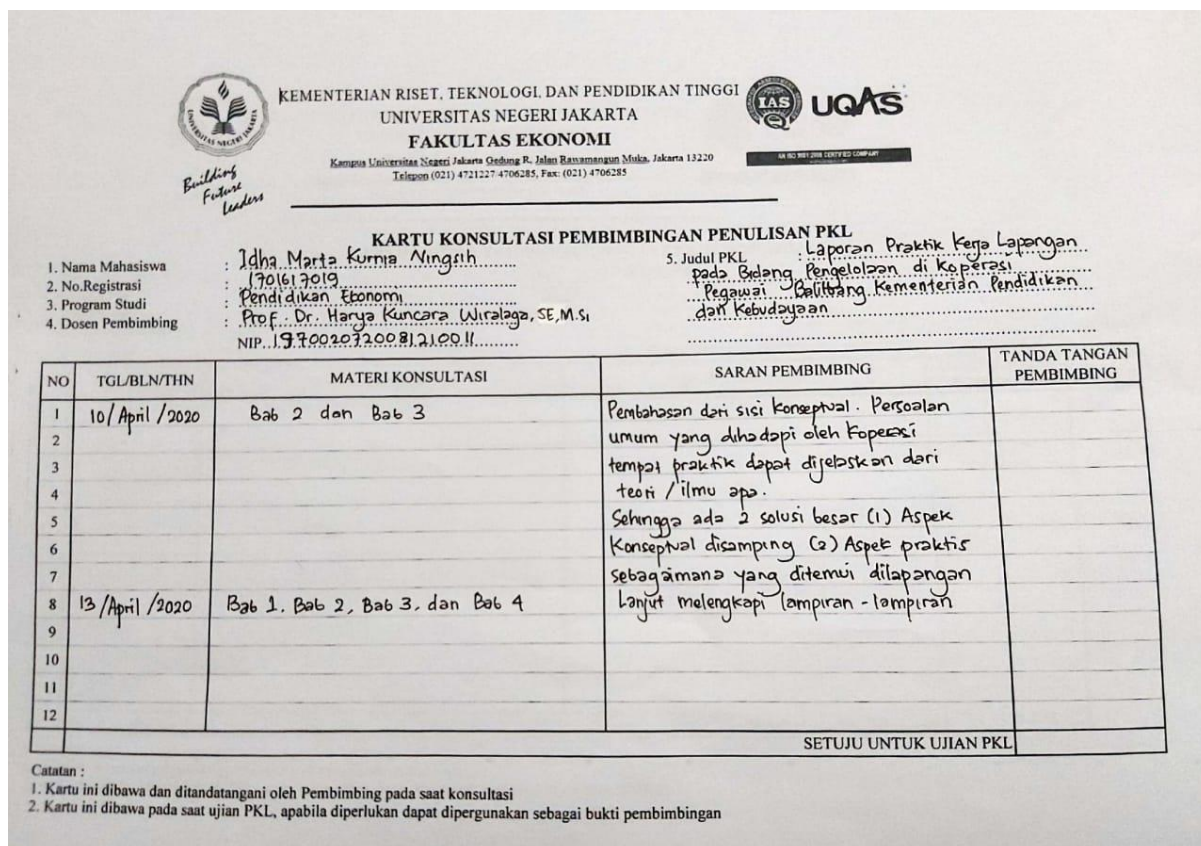 KEMENTERIAN RISET, TEKNOLOGI, DAN PENDIDIKAN TINGGI
UNIVERSITAS NEGERI JAKARTA
FAKULTAS EKONOMI
Kampus Universitas Negeri Jakarta Gedung R, Jalan Rawamangun Muka, Jakarta 13220
Telepon (021) 4721227 4706285, Fax: (021) 4706285
UNIVERSITAS NEGERI JAKARTA
Building
Future
Leaders
IAS
UQAS
AN ISO 9001:2008 CERTIFIED COMPANY
KARTU KONSULTASI PEMBIMBINGAN PENULISAN PKL
1. Nama Mahasiswa : Idha Marta Kurnia Ningsih
2. No.Registrasi : 1701617019
3. Program Studi : Pendidikan Ekonomi
4. Dosen Pembimbing : Prof. Dr. Harya Kuncara Wiralaga, SE, M.Si
NIP. 197002072008121001
5. Judul PKL : Laporan Praktik Kerja Lapangan
pada Bidang Pengelolaan di Koperasi
Pegawai Balitbang Kementerian Pendidikan
dan Kebudayaan
NO TGL/BLN/THN MATERI KONSULTASI SARAN PEMBIMBING TANDA TANGAN PEMBIMBING
1 10/April/2020 Bab 2 dan Bab 3 Pembahasan dari sisi konseptual. Persoalan
2 umum yang dihadapi oleh koperasi
3 tempat praktik dapat dijelaskan dari
4 teori / ilmu apa.
5 Sehingga ada 2 solusi besar (1) Aspek
6 Konseptual disamping (2) Aspek praktis
7 sebagaimana yang ditemui dilapangan
8 13/April/2020 Bab 1, Bab 2, Bab 3, dan Bab 4 Lanjut melengkapi lampiran - lampiran
9
10
11
12
SETUJU UNTUK UJIAN PKL
Catatan :
1. Kartu ini dibawa dan ditandatangani oleh Pembimbing pada saat konsultasi
2. Kartu ini dibawa pada saat ujian PKL, apabila diperlukan dapat dipergunakan sebagai bukti pembimbingan